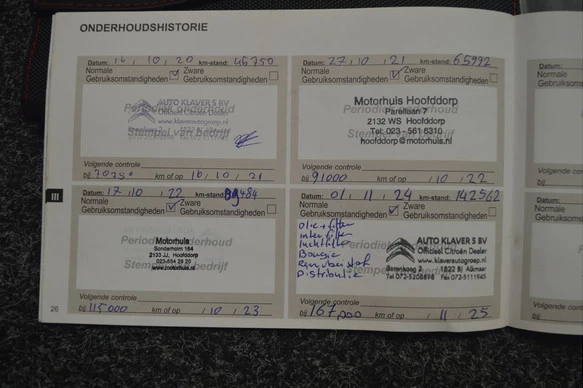 ONDERHOUDSHISTORIE
Datum: 16 / 10 / 20 km-stand: 45750
Normale Zware
Gebruiksomstandigheden Gebruiksomstandigheden
Periodiek onderhoud
AUTO KLAVER S BV
Officieel Citroën Dealer
www.klaverautogroep.nl
Stempel van bedrijf
Volgende controle
bij km of op 16 / 10 / 21
Datum: 27 / 10 / 21 km-stand: 65992
Normale Zware
Gebruiksomstandigheden Gebruiksomstandigheden
Motorhuis Hoofddorp
Parellaan 7
2132 WS Hoofddorp
Tel. 023 - 561 6310
hoofddorp@motorhuis.nl
Volgende controle
bij 91000 km of op / 10 / 22
III
Datum: 17 / 10 / 22 km-stand:
Normale Zware
Gebruiksomstandigheden Gebruiksomstandigheden
Periodiek onderhoud
Motorhuis
2133 JJ, Hoofddorp
www.motorhuis.nl
Stempel van bedrijf
Volgende controle
bij 115000 km of op / 10 / 23
Datum: 01 / 11 / 24 km-stand: 142562
Normale Zware
Gebruiksomstandigheden Gebruiksomstandigheden
olie + filter
interfilter
luchtfilter
Bougie
Remvloeistof
Distributie
AUTO KLAVER S BV
Officieel Citroën Dealer
www.klaverautogroep.nl
Berenkoog 7 1822 BJ Alkmaar
Tel 072-5208898 Fax 072-5111945
Volgende controle
bij 167,000 km of op / 11 / 25
26